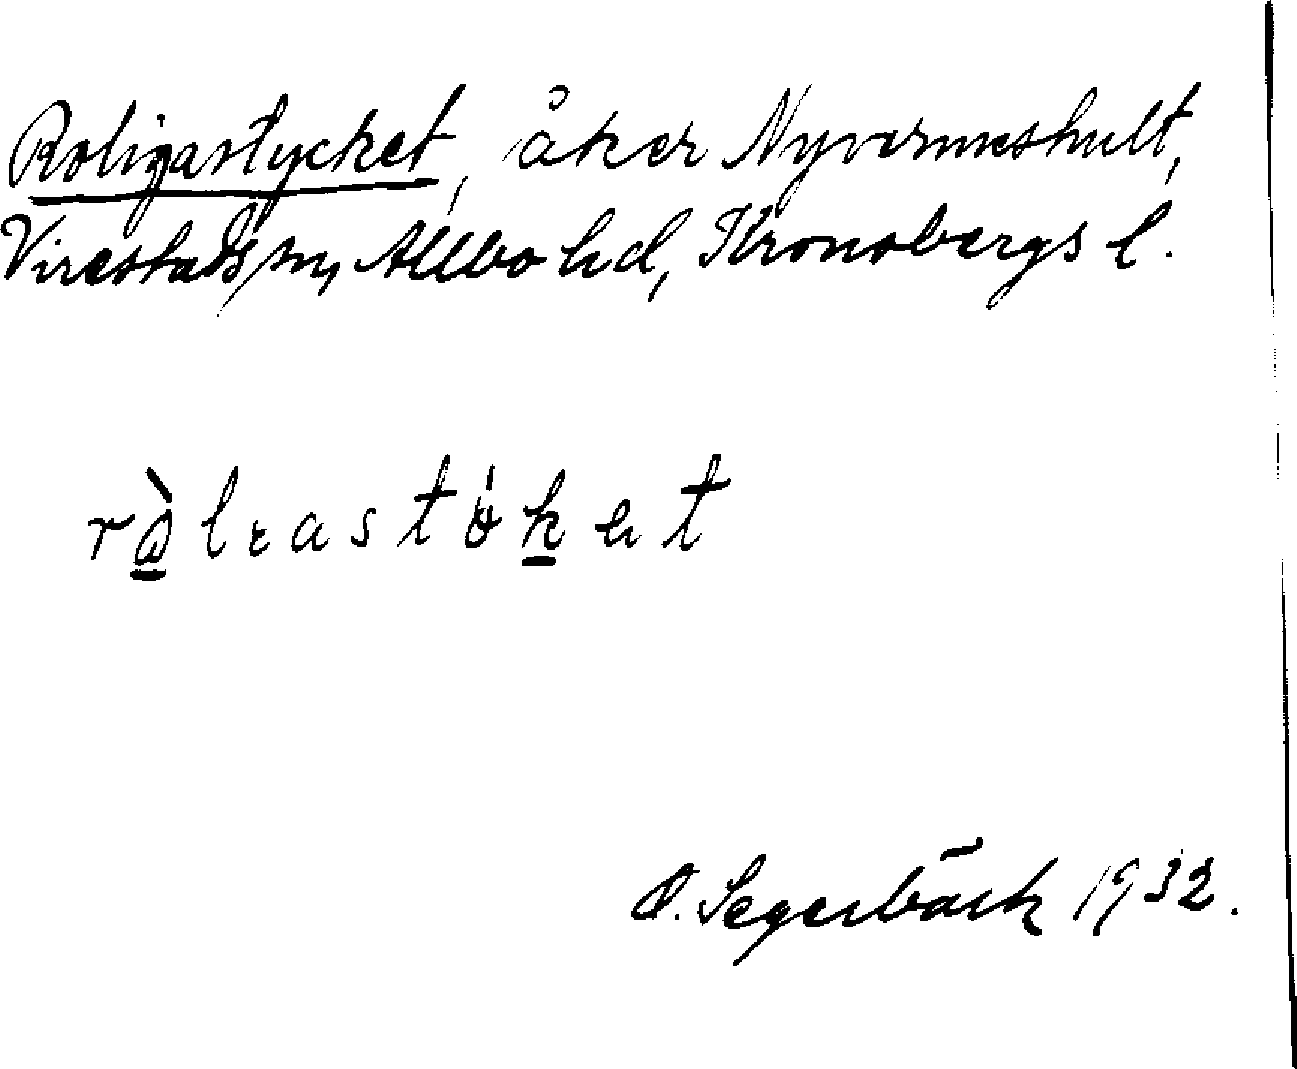 Roligastycket, åker Nyvirmeshult,
Virestads sn, Allbo hd, Kronobergs l.
ràlɩastöket
O. Segerbäck 1932.